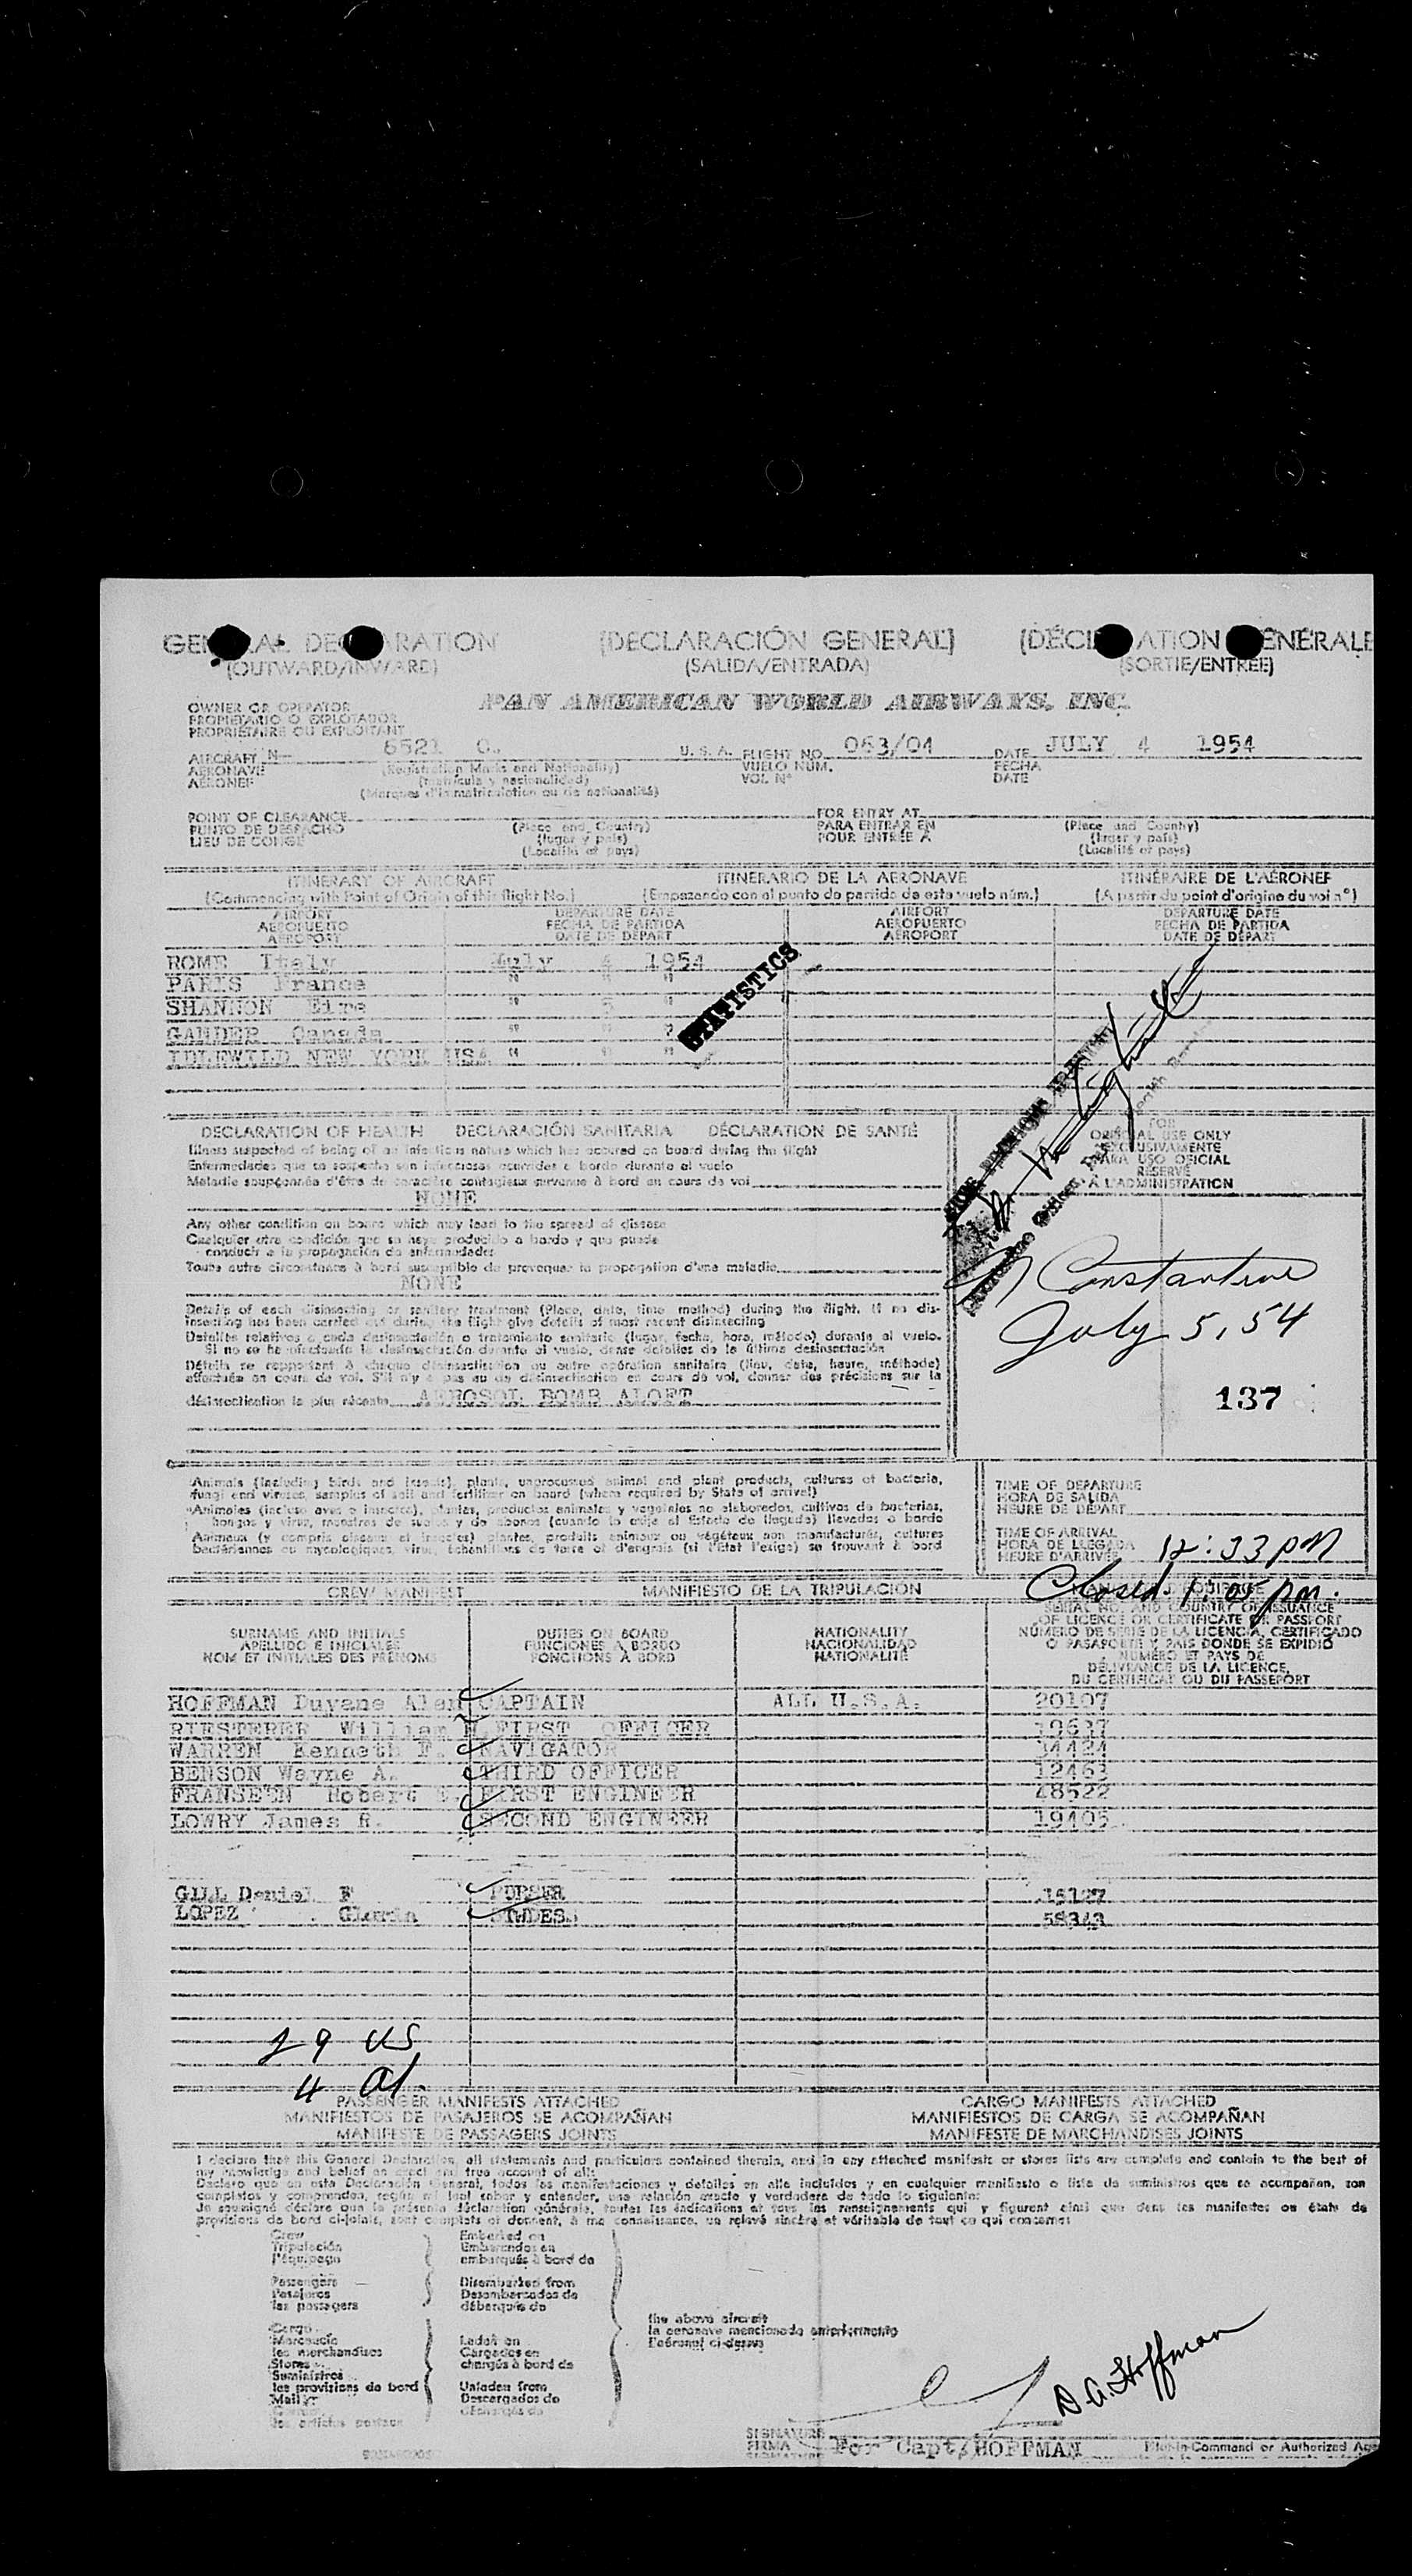 GENERAL DECLARATION (DECLARACIÓN GENERAL) (DÉCLARATION GÉNÉRALE
(OUTWARD/INWARD) (SALIDA/ENTRADA) (SORTIE/ENTRÉE)
OWNER OR OPERATOR PAN AMERICAN WORLD AIRWAYS, INC.
PROPIETARIO O EXPLOTADOR
PROPRIÉTAIRE OU EXPLOITANT
AIRCRAFT N- 6521 C. U. S. A. FLIGHT NO. 063/04 DATE JULY 4 1954
AERONAVE (Registration Marks and Nationality) VUELO NUM. FECHA
AÉRONEF (matrícula y nacionalidad) VOL N° DATE
(Marques d'immatriculation ou de nationalité)
POINT OF CLEARANCE FOR ENTRY AT
PUNTO DE DESPACHO (Place and Country) PARA ENTRAR EN (Place and Country)
LIEU DE CONGÉ (lugar y país) POUR ENTRÉE A (lugar y país)
(Localité et pays) (Localité et pays)
ITINERARY OF AIRCRAFT ITINERARIO DE LA AERONAVE ITINÉRAIRE DE L'AÉRONEF
(Commencing with Point of Origin of this flight No.) (Empezando con el punto de partida de este vuelo núm.) (A partir du point d'origine du vol n°)
AIRPORT DEPARTURE DATE AIRPORT DEPARTURE DATE
AEROPUERTO FECHA DE PARTIDA AEROPUERTO FECHA DE PARTIDA
AÉROPORT DATE DE DÉPART AÉROPORT DATE DE DÉPART
ROME Italy July 4 1954
PARIS France " " "
SHANNON Eire " 5 "
GANDER Canada " " "
IDLEWILD NEW YORK USA " " "
STATISTICS
DECLARATION OF HEALTH DECLARACIÓN SANITARIA DÉCLARATION DE SANTÉ
Illness suspected of being of an infectious nature which has occurred on board during the flight
Enfermedades que se sospecha son infecciosas ocurridas a bordo durante el vuelo
Maladie soupçonnée d'être de caractère contagieux survenue à bord au cours de vol
NONE
Any other condition on board which may lead to the spread of disease
Cualquier otra condición que se haya producido a bordo y que puede
conducir a la propagación de enfermedades
Toute autre circonstance à bord susceptible de provoquer la propagation d'une maladie
NONE
Details of each disinsecting or sanitary treatment (Place, date, time method) during the flight. If no dis-
insecting has been carried out during the flight give details of most recent disinsecting
Detalles relativos a cada desinsectación o tratamiento sanitario (lugar, fecha, hora, método) durante el vuelo.
Si no se ha efectuado la desinsectación durante el vuelo, dense detalles de la última desinsectación
Détails se rapportant à chaque désinsectisation ou autre opération sanitaire (lieu, date, heure, méthode)
effectuée au cours de vol. S'il n'y a pas eu de désinsectisation en cours de vol, donner des précisions sur la
désinsectisation la plus récente AEROSOL BOMB ALOFT
FOR
OFFICIAL USE ONLY
EXCLUSIVAMENTE
PARA USO OFICIAL
RÉSERVÉ
À L'ADMINISTRATION
Constantine
July 5, 54
137
Animals (including birds and insects), plants, unprocessed animal and plant products, cultures of bacteria,
fungi and viruses, samples of soil and fertilizer on board (where required by State of arrival)
Animales (incluso aves e insectos), plantas, productos animales y vegetales no elaborados, cultivos de bacterias,
hongos y virus, muestras de suelo y de abonos (cuando lo exija el Estado de llegada) llevados a bordo
Animaux (y compris oiseaux et insectes) plantes, produits animaux ou végétaux non manufacturés, cultures
bactériennes ou mycologiques, virus, échantillons de terre et d'engrais (si l'État l'exige) se trouvant à bord
TIME OF DEPARTURE
HORA DE SALIDA
HEURE DE DÉPART
TIME OF ARRIVAL
HORA DE LLEGADA 12:33 pm
HEURE D'ARRIVÉE
Closed 1:05 pm.
CREW MANIFEST MANIFIESTO DE LA TRIPULACION
SURNAME AND INITIALS DUTIES ON BOARD NATIONALITY SERIAL NO. AND COUNTRY OF ISSUANCE
APELLIDO E INICIALES FUNCIONES A BORDO NACIONALIDAD OF LICENCE OR CERTIFICATE OR PASSPORT
NOM ET INITIALES DES PRÉNOMS FONCTIONS À BORD NATIONALITÉ NÚMERO DE SERIE DE LA LICENCIA, CERTIFICADO
O PASAPORTE Y PAIS DONDE SE EXPIDIÓ
NUMÉRO ET PAYS DE
DÉLIVRANCE DE LA LICENCE,
DU CERTIFICAT OU DU PASSEPORT
HOFFMAN Duyane Alan CAPTAIN ALL U.S.A. 20107
RIESTERER William H. FIRST OFFICER 19637
WARREN Kenneth F. NAVIGATOR 34424
BENSON Wayne A. THIRD OFFICER 12463
FRANSEEN Robert FIRST ENGINEER 48522
LOWRY James R. SECOND ENGINEER 19405
GILL Daniel F PURSER 15127
LOPEZ Gloria STWDESS 58343
29 US
4 Al.
PASSENGER MANIFESTS ATTACHED CARGO MANIFESTS ATTACHED
MANIFIESTOS DE PASAJEROS SE ACOMPAÑAN MANIFIESTOS DE CARGA SE ACOMPAÑAN
MANIFESTE DE PASSAGERS JOINTS MANIFESTE DE MARCHANDISES JOINTS
I declare that this General Declaration, all statements and particulars contained therein, and in any attached manifests or stores lists are complete and contain to the best of
my knowledge and belief an exact and true account of all:
Declaro que en esta Declaración General, todas las manifestaciones y detalles en ella incluidos y en cualquier manifiesto o lista de suministros que se acompañan, son
completos y comprenden, según mi leal saber y entender, una relación exacta y verdadera de todo lo siguiente:
Je soussigné déclare que la présente déclaration générale, toutes les indications et tous les renseignements qui y figurent ainsi que dans les manifestes ou états de
provisions de bord ci-joints, sont complets et donnent, à ma connaissance, un relevé sincère et véritable de tout ce qui concerne:
Crew Embarked on
Tripulación Embarcados en
l'équipage embarqués à bord de
Passengers Disembarked from
Pasajeros Desembarcados de
les passagers débarqués de
the above aircraft
la aeronave mencionada anteriormente
l'aéronef ci-dessus
Cargo
Mercancía Laden on
les marchandises Cargados en
Stores chargés à bord de
Suministros
les provisions de bord Unladen from
Mail Descargados de
déchargés de
les articles postaux
D. A. Hoffman
SIGNATURE
FIRMA For Capt/HOFFMAN Pilot-in-Command or Authorized Ag
SIGNATURE